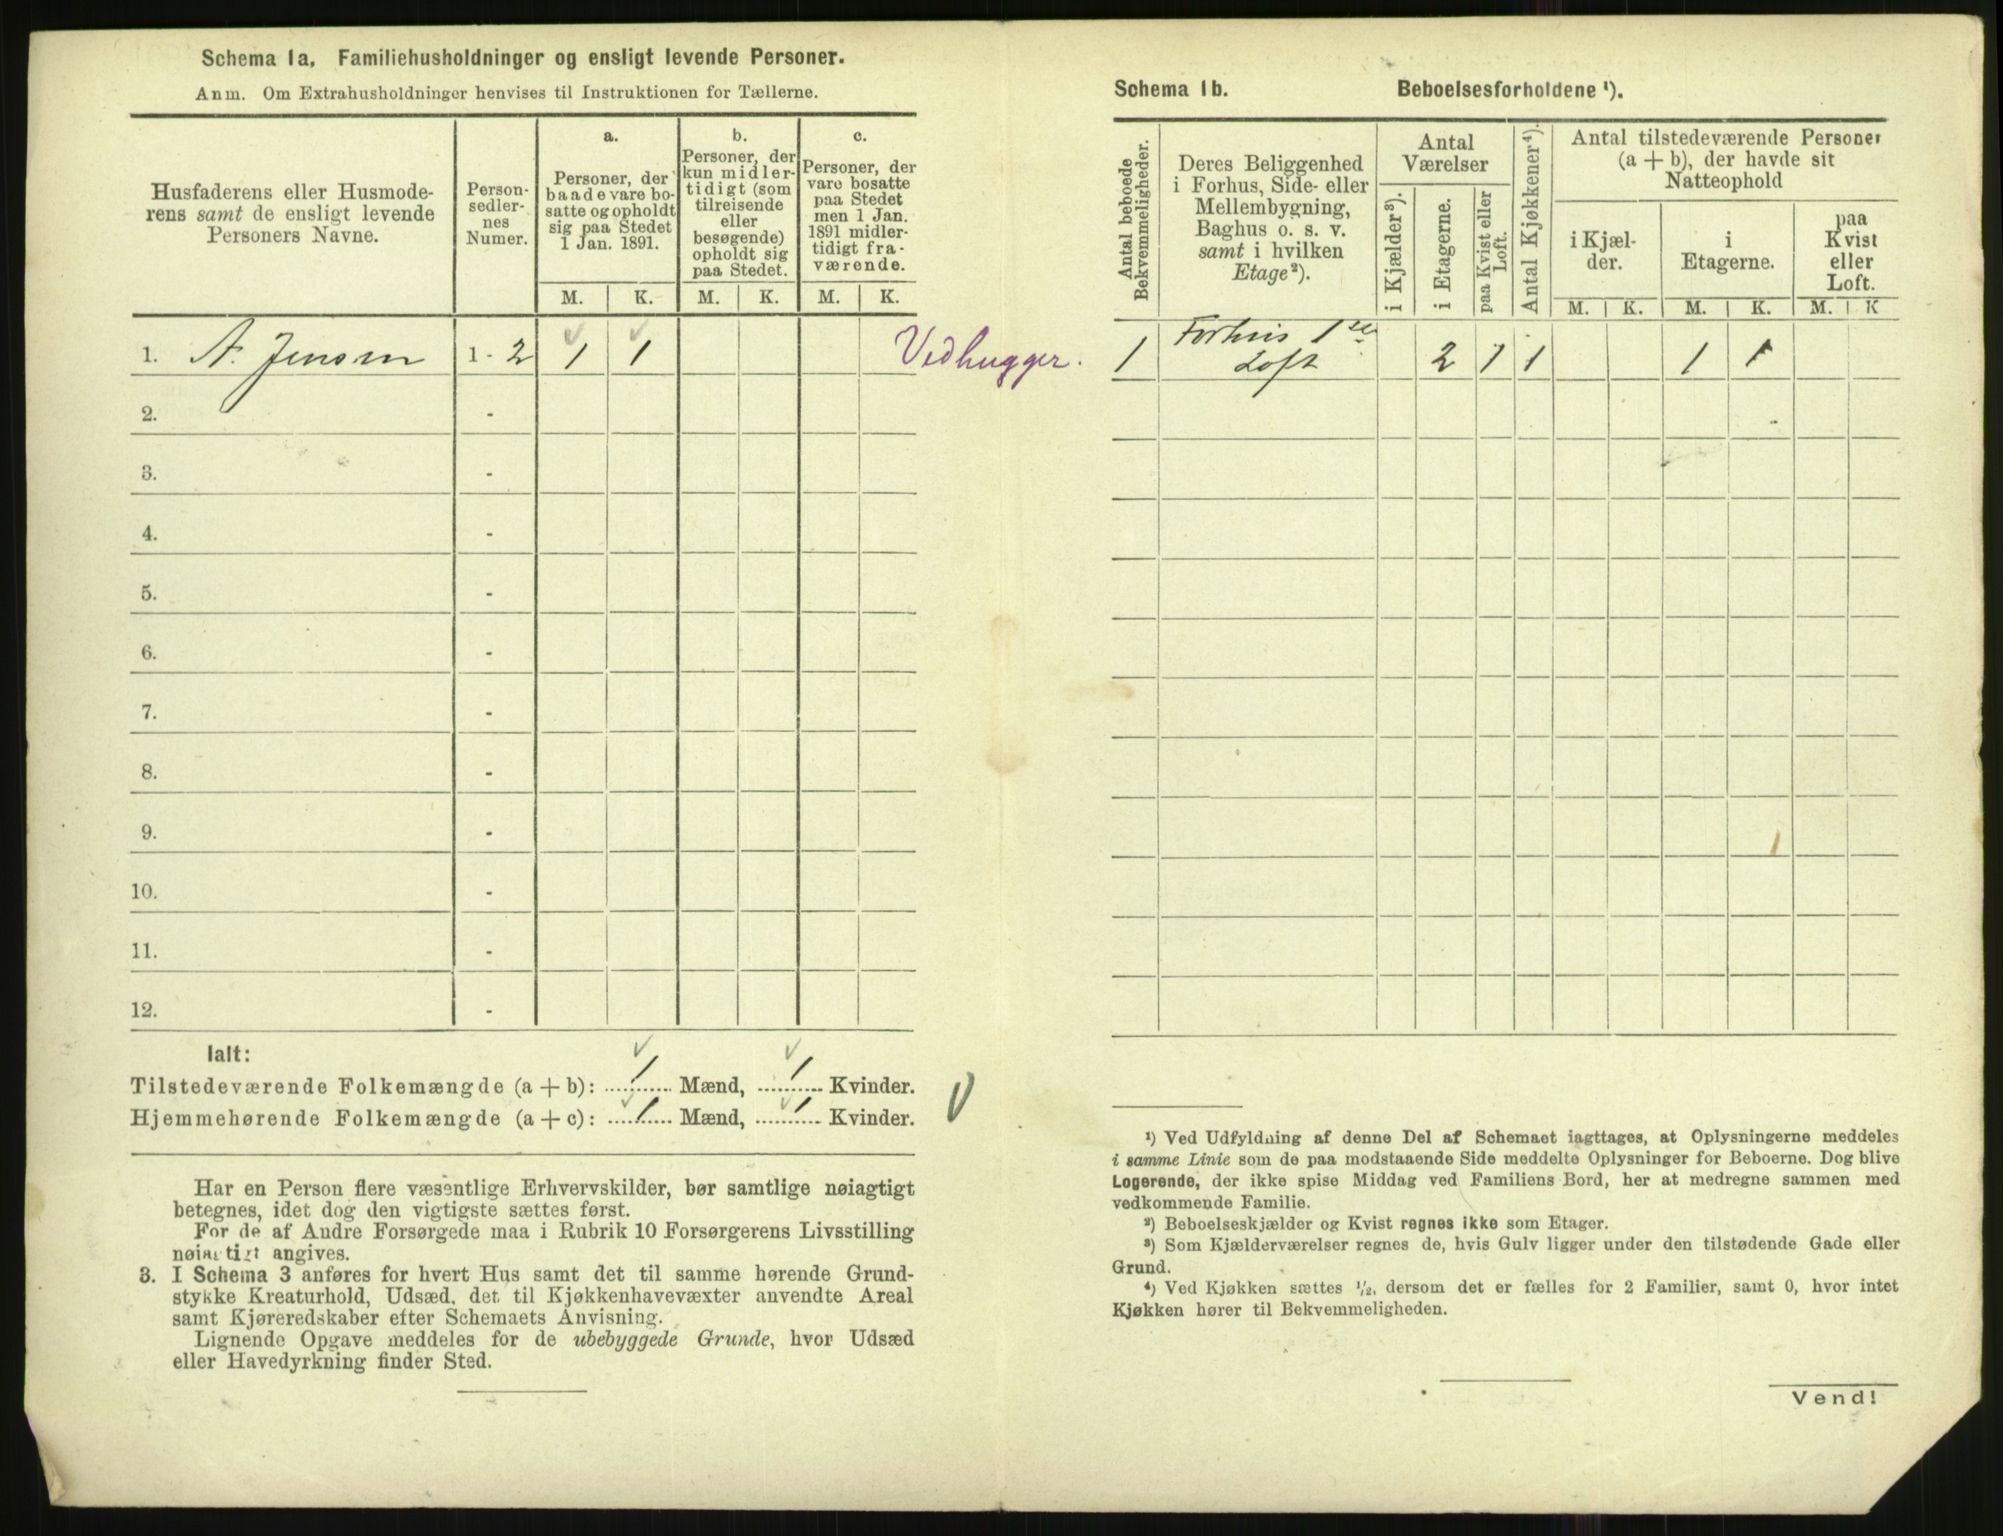 Schema 1a. Familiehusholdninger og ensligt levende Personer.
Anm. Om Extrahusholdninger henvises til Instruktionen for Tællerne.
Husfaderens eller Husmode-
rens samt de ensligt levende
Personers Navne.
Person-
sedler-
nes
Numer.
a.
Personer, der
baade vare bo-
satte og opholdt
sig paa Stedet
1 Jan. 1891.
b.
Personer, der
kun midler-
tidigt (som
tilreisende
eller
besøgende)
opholdt sig
paa Stedet.
c.
Personer, der
vare bosatte
paa Stedet
men 1 Jan.
1891 midler-
tidigt fra-
værende.
M. K. M. K. M. K.
1. A. Jensen 1 - 2 1 1 Vedhugger.
2. -
3. -
4. -
5. -
6. -
7. -
8. -
9. -
10. -
11. -
12. -
Ialt:
Tilstedeværende Folkemængde (a + b): 1 Mænd, 1 Kvinder.
Hjemmehørende Folkemængde (a + c): 1 Mænd, 1 Kvinder.
Har en Person flere væsentlige Erhvervskilder, bør samtlige nøiagtigt
betegnes, idet dog den vigtigste sættes først.
For de af Andre Forsørgede maa i Rubrik 10 Forsørgerens Livsstilling
nøiagtigt angives.
3. I Schema 3 anføres for hvert Hus samt det til samme hørende Grund-
stykke Kreaturhold, Udsæd, det til Kjøkkenhavevæxter anvendte Areal
samt Kjøreredskaber efter Schemaets Anvisning.
Lignende Opgave meddeles for de ubebyggede Grunde, hvor Udsæd
eller Havedyrkning finder Sted.
Schema 1b. Beboelsesforholdene ¹).
Antal beboede
Bekvemmeligheder.
Deres Beliggenhed
i Forhus, Side- eller
Mellembygning,
Baghus o. s. v.
samt i hvilken
Etage²).
Antal
Værelser
i Kjælder³).
i Etagerne.
paa Kvist eller
Loft.
Antal Kjøkkener⁴).
Antal tilstedeværende Personer
(a + b), der havde sit
Natteophold
i Kjæl-
der.
i
Etagerne.
paa
Kvist
eller
Loft.
M. K. M. K. M. K
1 Forhus 1ste
Loft 2 1 1 1 1
¹) Ved Udfyldning af denne Del af Schemaet iagttages, at Oplysningerne meddeles
i samme Linie som de paa modstaaende Side meddelte Oplysninger for Beboerne. Dog blive
Logerende, der ikke spise Middag ved Familiens Bord, her at medregne sammen med
vedkommende Familie.
²) Beboelseskjælder og Kvist regnes ikke som Etager.
³) Som Kjælderværelser regnes de, hvis Gulv ligger under den tilstødende Gade eller
Grund.
⁴) Ved Kjøkken sættes ½, dersom det er fælles for 2 Familier, samt 0, hvor intet
Kjøkken hører til Bekvemmeligheden.
Vend!